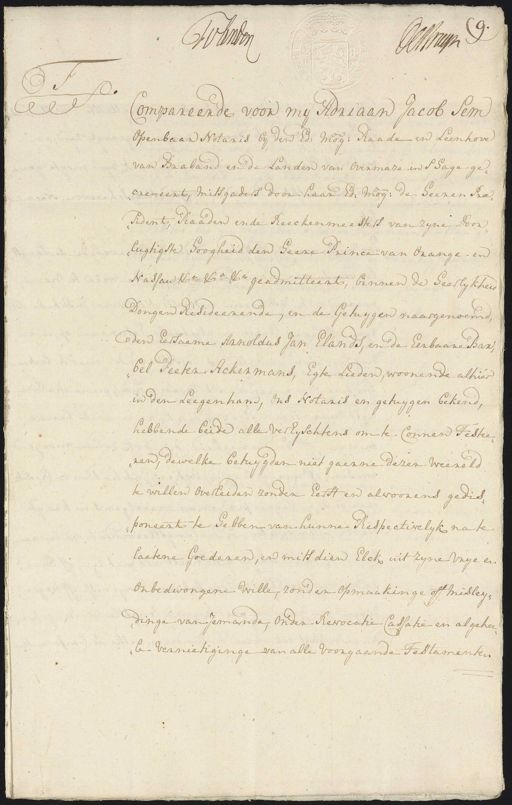 9.
Compareerde voor mij Adriaan Jacob Sem
openbaar Notaris by den Ed: Mog: Raade en Leenhove
van Braband en de Landen van Overmaze in S'Hage ge
creeeert, mitsgaders door haar Ed: Mog: de Heeren Pre
sident, Raaden ende Reeckenmeesters van zyne Door,
lugtigste Hoogheid den Heere Prince van Orange en
Nassau &c &c &c geadmitteert, binnen de Heerlykheid
Dongen Resideerende, en de Getuygen naargenoemd,
den Eersaeme Arnoldus Jan Elands, en de Eerbaare Bar,
bel Peeter Ackermans, Egte Lieden, woonende alhier
in den Leegenham, Ons Notaris en getuygen bekend,
hebbende beide alle vereyschtens om te Connen Testee-
ren, dewelke betuygden niet gaerne dezer weereld
te willen overleeden zonder Eerst en alvoorens gedis,
poneert te hebben van hunne Respectivelyk na te
laetene Goederen, en mits dien Elck uit zyne vrye en
onbedwongene wille, zonder opmaakinge off misley-
dinge van jemande, onder Revocatie Cassatie en algehe-
le vernietiginge van alle voorgaande Testamenten